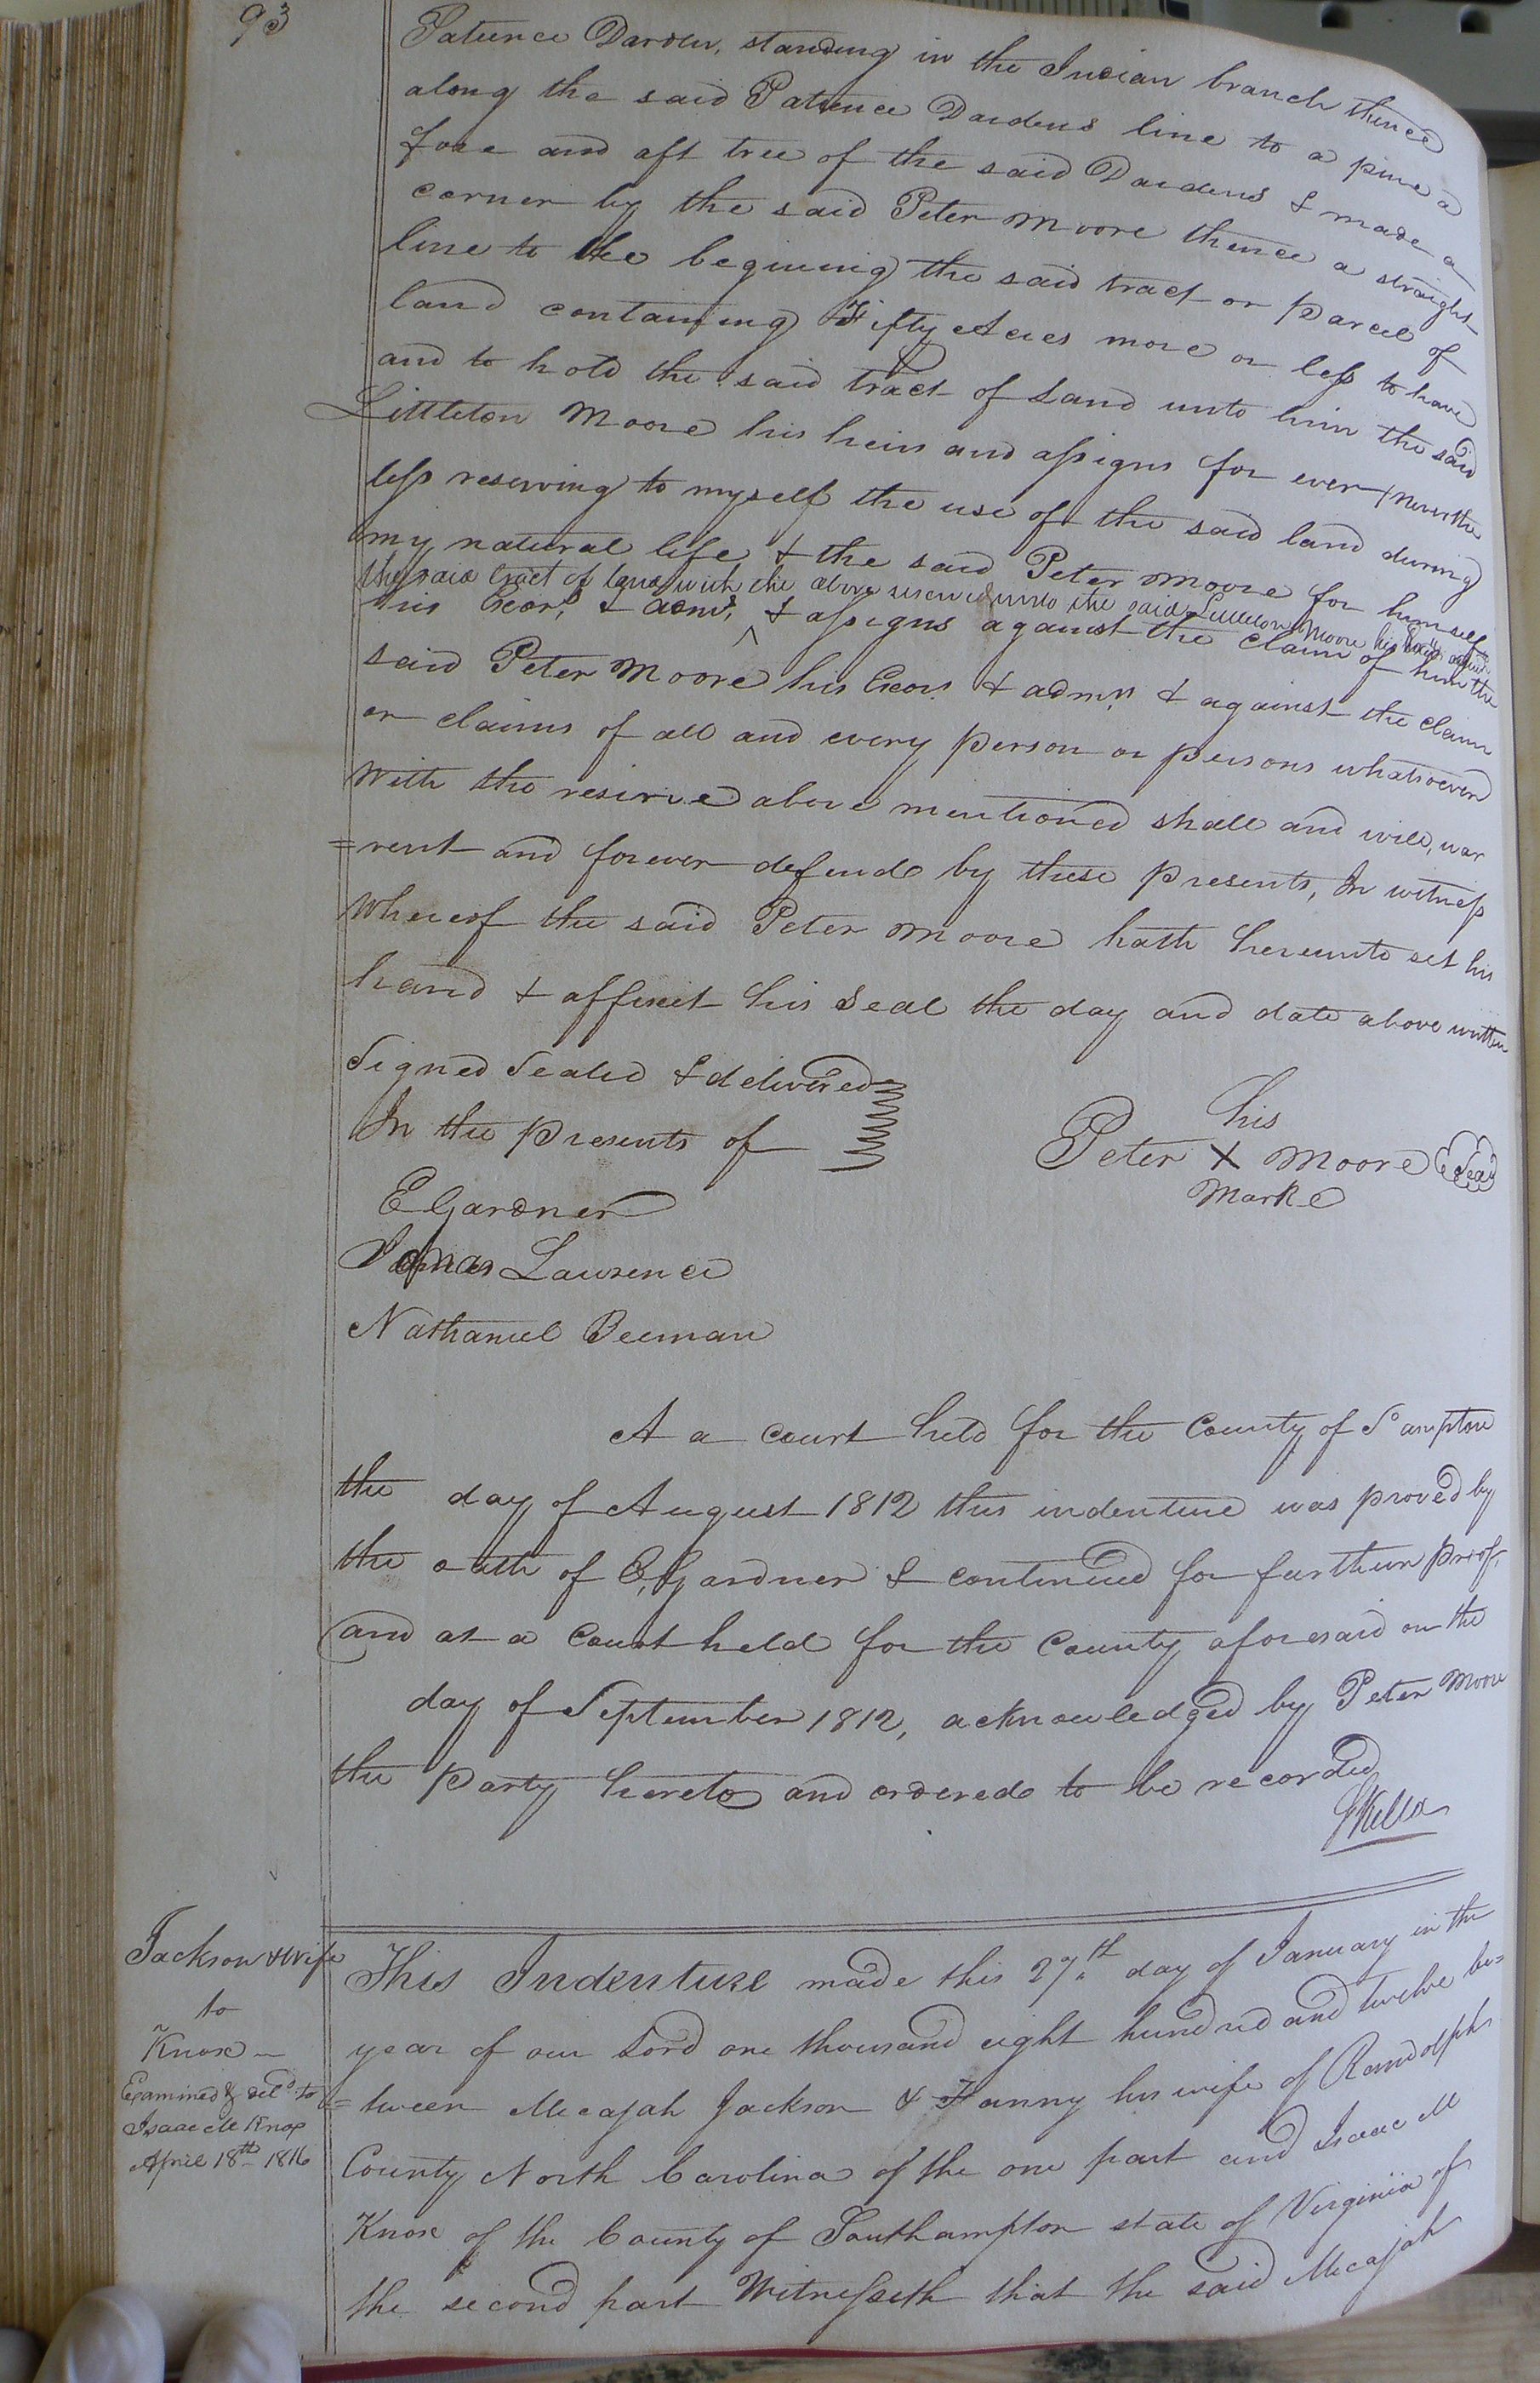 93
Patience Darden, standing in the Indian branch thence
along the said Patience Dardens line to a pine a
fore and aft tree of the said Dardens & made a
corner by the said Peter Moore thence a straight
line to the begining the said tract or parcel of
land containing Fifty Acres more or less to have
and to hold the said tract of Land unto him the said
Littleton Moore his heirs and assigns for ever (neverthe
less reserving to myself the use of the said land during
my natural life & the said Peter Moore for himself
the said tract of land with the above reserve unto the said Littleton Moore his
his Exors, & admrs, ^ & assigns against the claim of him the
said Peter Moore his Exors & admrs & against the claim
or claims of all and every person or persons whatsoever
With the reserve above mentioned shall and will, war
=rent and forever defende by these presents, In witness
Whereof the said Peter Moore hath hereunto set his
hand & affixet his Seal the day and date above written
Signed Sealed & delivered
In the presents of
his
Peter X Moore Seal
Marke
E Gardner
James Lawrence
Nathaniel Beeman
A a court held for the County of S ampton
the day of August 1812 this indenture was proved by
the oath of E, Gardner & continued for further proof,
and at a Court held for the County aforesaid on the
day of September 1812, acknowledged by Peter Moore
the party hereto and ordered to be recorded
Jackson & Wife
to
Knox
Examined & deld to
Isaac M Knox
April 18th 1816
This Indenture made this 27th day of January in the
year of our Lord one thousand eight hundred and twelve be=
=tween Micajah Jackson & Fanny his wife of Randolph
County North Carolina of the one part and Isaac M
Knox of the County of Southampton state of Virginia of
the second part Witnesseth that the said Micajah